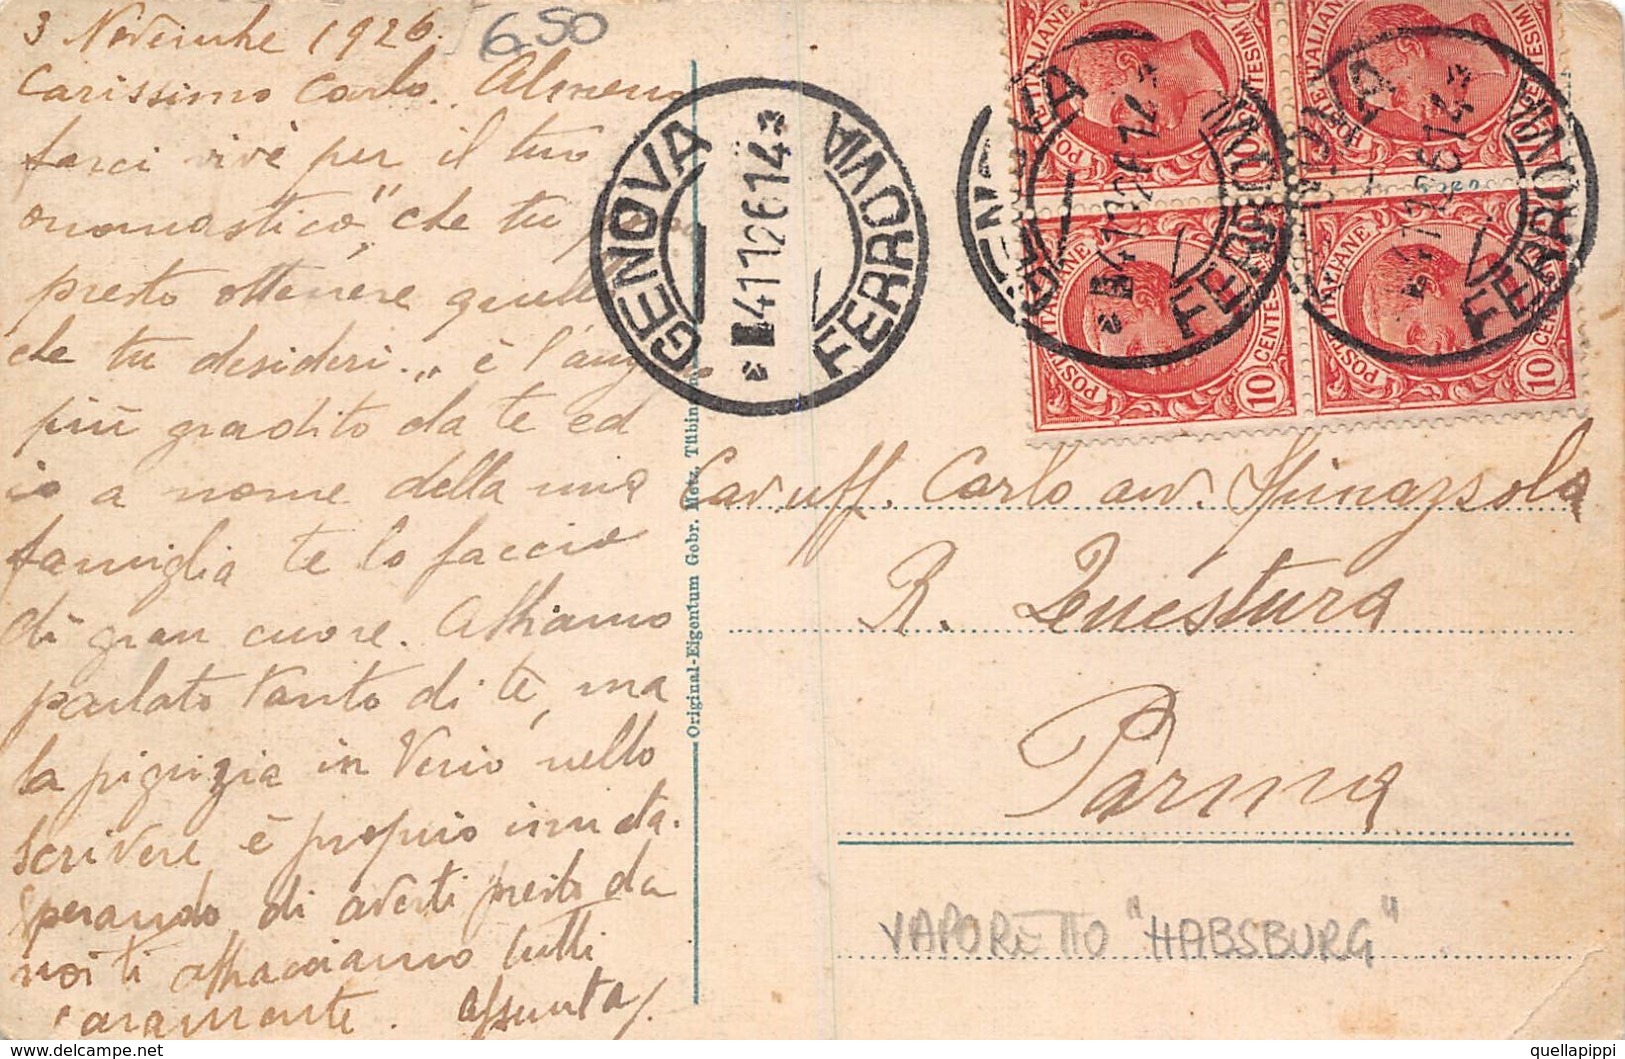 3 Novembre 1926.
650
Carissimo Carlo.. Almeno
farci vivè per il tuo
onomastico, che tu possa
presto ottenere quello
che tu desideri.,, è l'augurio
più gradito da te ed
io a nome della mia
famiglia te lo faccio
di gran cuore. Abbiamo
parlato tanto di te, ma
la pigrizia in Verio nello
scrivere è proprio inudita.
Sperando di averti presto da
noi ti abbracciamo tutti
caramente. Assunta
Original-Eigentum Gebr. Metz, Tübin
GENOVA
FERROVIA
4 11 26 14
GENOVA
FERROVIA
GENOVA
FERROVIA
POSTE ITALIANE
10 CENTESIMI
POSTE ITALIANE
10 CENTESIMI
POSTE ITALIANE
10 CENTESIMI
POSTE ITALIANE
10 CENTESIMI
Cav. uff. Carlo avv. Spinazzola
R. Questura
Parma
VAPORETTO "HABSBURG"
quellapippi